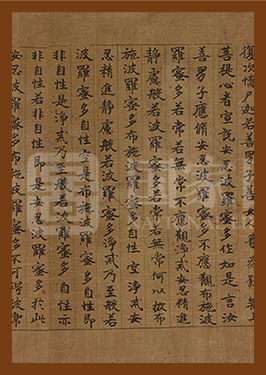 復次憍尸迦若善男子善女
菩提心者宣說安忍波羅蜜多作如是言汝
善男子應脩安忍波羅蜜多不應觀布施波
羅蜜多若常若無常不應觀淨戒安忍精進
靜慮般若波羅蜜多若常若無常何以故布
施波羅蜜多布施波羅蜜多自性空淨戒安
忍精進靜慮般若波羅蜜多淨戒乃至般若
波羅蜜多自性空是布施波羅蜜多自性即
非自性是淨戒乃至般若波羅蜜多自性亦
非自性若非自性即是安忍波羅蜜多於此
安忍波羅蜜多布施波羅蜜多不可得彼常